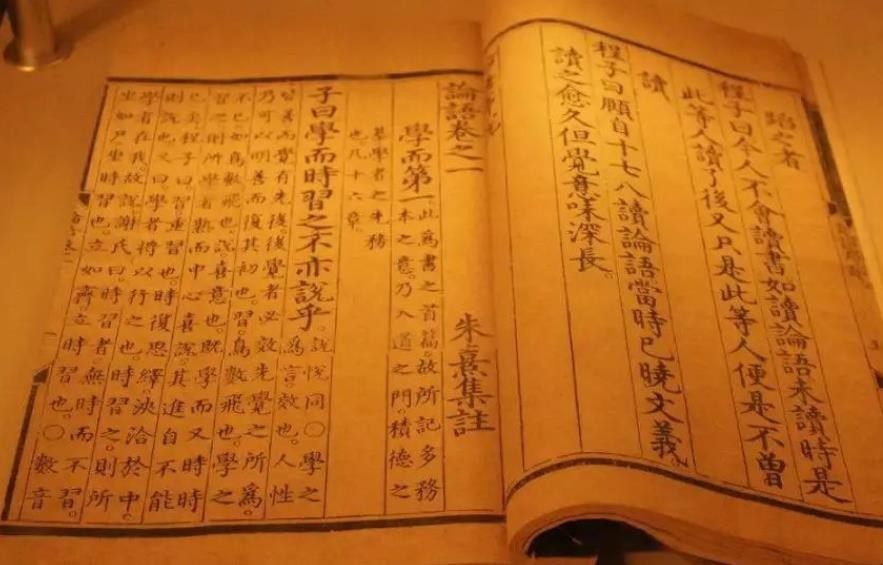 蹈之者
程子曰今人不會讀書如讀論語未讀時是
此等人讀了後又只是此等人便是不曾
讀
程子曰願自十七八讀論語當時已曉文義
讀之愈久但覺意味深長
論語卷之一 朱熹集註
學而第一 此為書之首篇。故所記多務
本之意。乃入道之門。積德之
基學者之先務
也。凡十六章。
子曰學而時習之不亦說乎。說悅同〇學之
為言效也。人性
皆善而覺有先後。後覺者必效先覺之所爲。
乃可以明善而復其初也。習。鳥數飛也。學之
不已如鳥數飛也。說。喜意也。既學而又時時
習之則所學者熟而中心喜說。其進自不能
已矣程子曰。習。重習也。時復思繹。浹洽於中。
則說也。又曰。學者將以行之也。時習之。則所
學者在我。故說。謝氏曰。時習者。無時而不習。
坐如尸坐時習也。立如齊。立時習也。〇數音